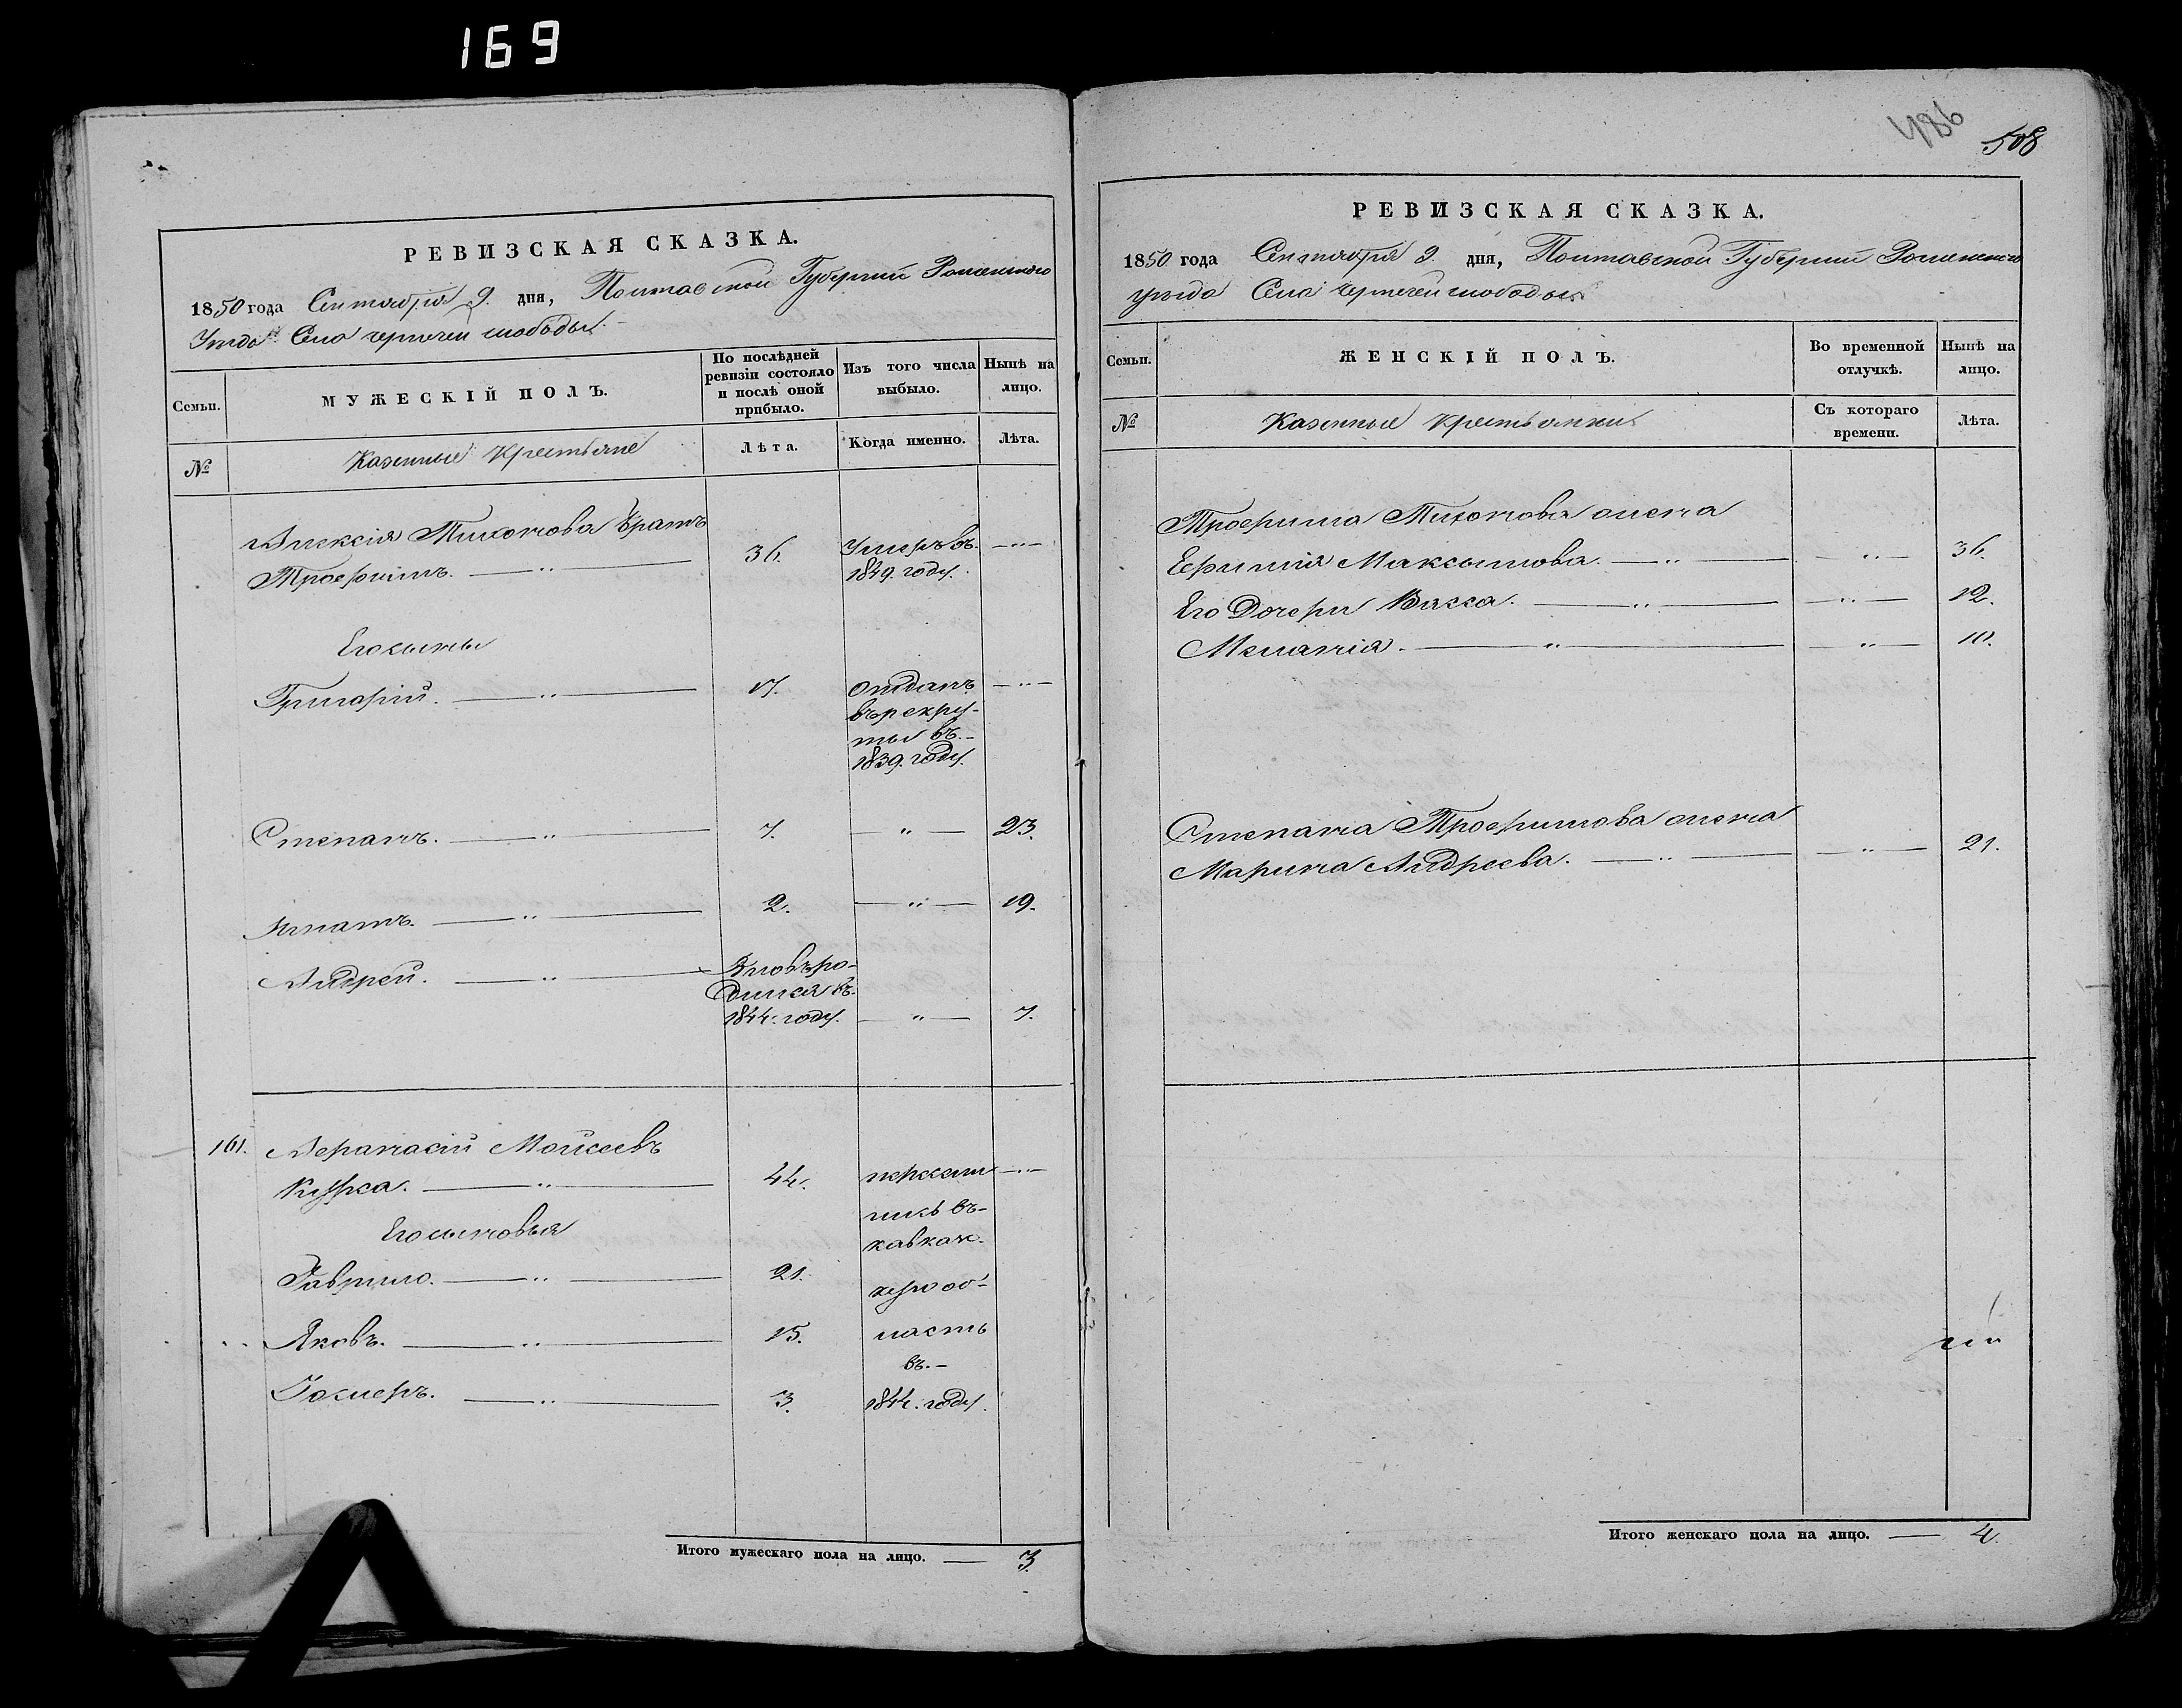 169
РЕВИЗСКАЯ СКАЗКА.
1850 года Сентября 9. дня, Полтавской Губернии Роменского
Уезда Села чертечей слободы.
Семьи.
МУЖЕСКІЙ ПОЛЪ.
По послѣдней ревизіи состояло и послѣ оной прибыло.
Изъ того числа выбыло.
Нынѣ на лицо.
№
Казенные Крестьяне
Лѣта.
Когда именно.
Лѣта.
Алексія Тихонова братъ
Трофимъ. — " — 36. Умеръ въ — " —
1849. году.
Его сыны
Григорій. — " — 17. отданъ — " —
въ рекру-
ты въ-
1839. году.
Степанъ. — " — 7. — " — 23.
Игнатъ. — " — 2. — " — 19.
Андрей. — " — Вновь ро-
дился въ-
1844. году. — " — 7.
161. Афанасій Мойсеевъ
Курка. — " — 44. пересели — " —
лись въ-
Его сыновья
кавказ-
Гаврило. — " — 21.
кую об-
Яковъ. — " — 15. ласть
въ.-
3. 1844. году.
Итого мужескаго пола на лицо. — 3.
486
508
РЕВИЗСКАЯ СКАЗКА.
1850 года Сентября 9. дня, Полтавской Губернии Роменского
уезда Села чертечей слободы
Семьи.
ЖЕНСКІЙ ПОЛЪ.
Во временной отлучкѣ.
Нынѣ на лицо.
№
Казенные крестьянки
Съ котораго времени.
Лѣта.
Трофима Тихонова жена
Ефимия Максимова. — " — — " — 36.
Его Дочери Васса. — " — — " — 12.
Меланія. — " — — " — 10.
Степана Трофимова жена
Марина Андреева. — " — — " — 21.
Итого женскаго пола на лицо. — 4.